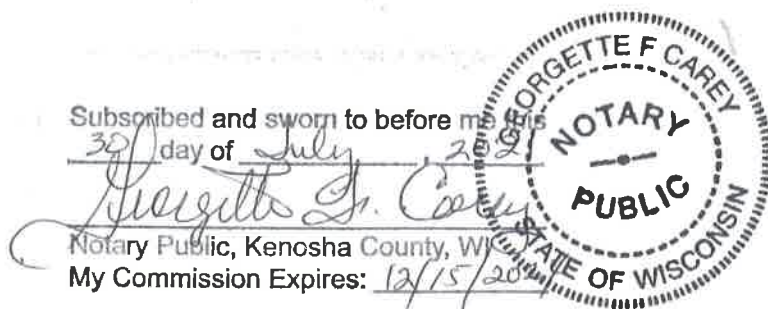 Subscribed and sworn to before me this
30 day of July, 202
Georgette F. Carey
Notary Public, Kenosha County, WI
My Commission Expires: 12/15/202
GEORGETTE F CAREY
NOTARY
PUBLIC
STATE OF WISCONSIN